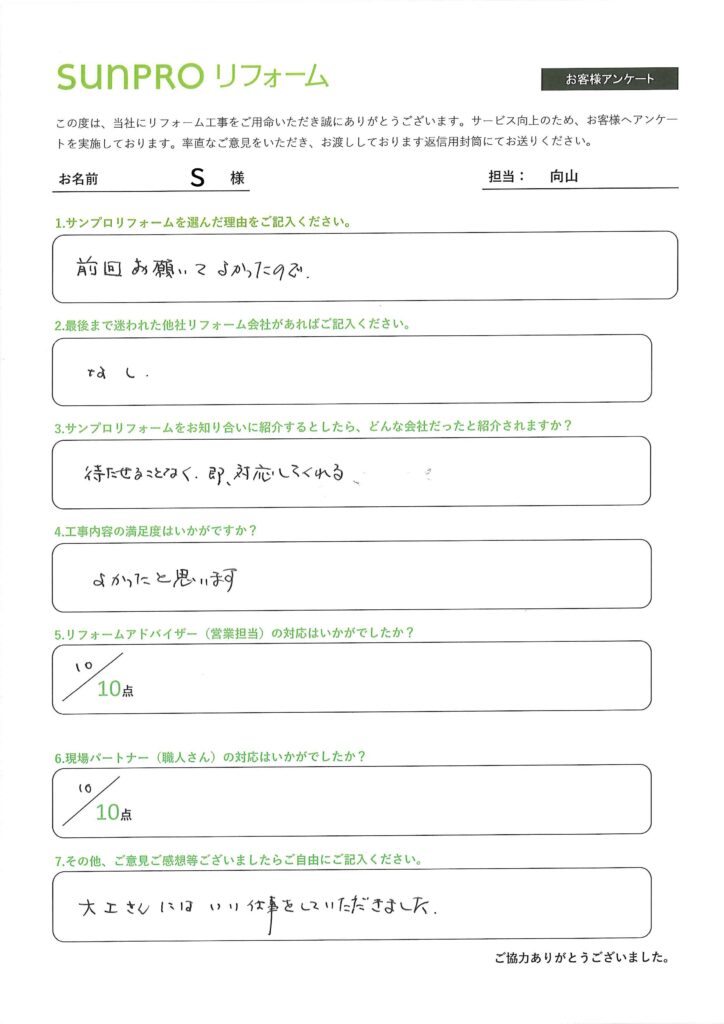 SUNPRO リフォーム
お客様アンケート
この度は、当社にリフォーム工事をご用命いただき誠にありがとうございます。サービス向上のため、お客様へアンケー
トを実施しております。率直なご意見をいただき、お渡ししております返信用封筒にてお送りください。
お名前 S 様
担当： 向山
1.サンプロリフォームを選んだ理由をご記入ください。
前回お願いてよかったので.
2.最後まで迷われた他社リフォーム会社があればご記入ください。
なし.
3.サンプロリフォームをお知り合いに紹介するとしたら、どんな会社だったと紹介されますか？
待たせることなく.即、対応してくれる
4.工事内容の満足度はいかがですか？
よかったと思います
5.リフォームアドバイザー（営業担当）の対応はいかがでしたか？
10/10点
6.現場パートナー（職人さん）の対応はいかがでしたか？
10/10点
7.その他、ご意見ご感想等ございましたらご自由にご記入ください。
大工さんにはいい仕事をしていただきました.
ご協力ありがとうございました。